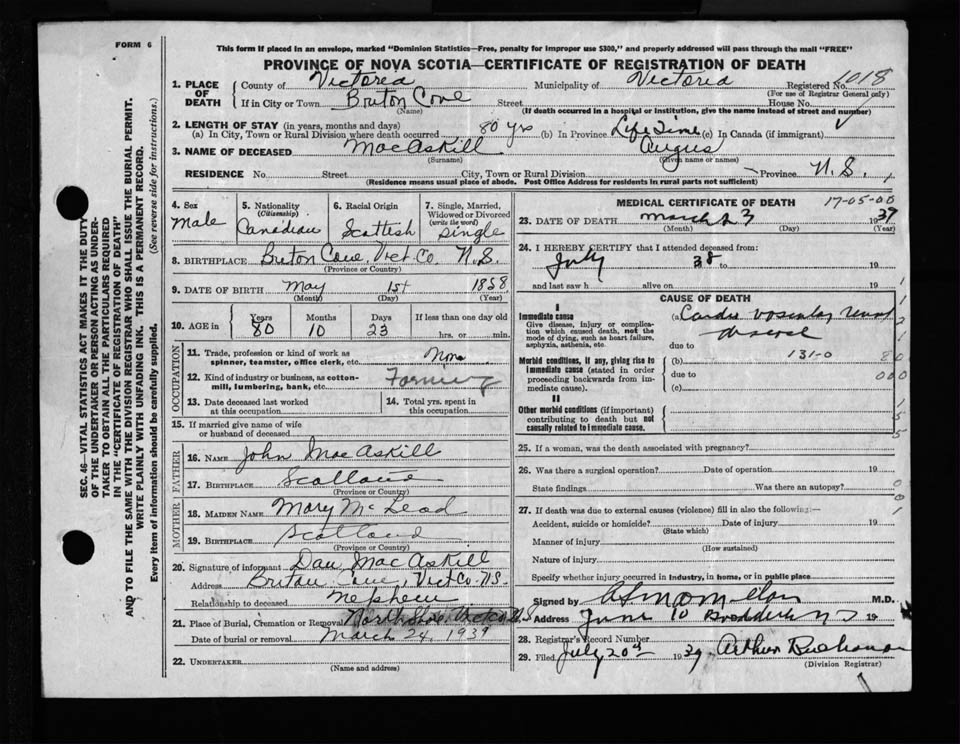 FORM 6
This form if placed in an envelope, marked "Dominion Statistics—Free, penalty for improper use $300," and properly addressed will pass through the mail "FREE"
PROVINCE OF NOVA SCOTIA—CERTIFICATE OF REGISTRATION OF DEATH
SEC. 46—VITAL STATISTICS ACT MAKES IT THE DUTY
OF THE UNDERTAKER OR PERSON ACTING AS UNDER-
TAKER TO OBTAIN ALL THE PARTICULARS REQUIRED
IN THE "CERTIFICATE OF REGISTRATION OF DEATH"
AND TO FILE THE SAME WITH THE DIVISION REGISTRAR WHO SHALL ISSUE THE BURIAL PERMIT.
WRITE PLAINLY WITH UNFADING INK. THIS IS A PERMANENT RECORD.
Every item of information should be carefully supplied. (See reverse side for instructions.)
1. PLACE OF DEATH County of Victoria Municipality of Victoria Registered No. 1018
(For use of Registrar General only)
If in City or Town Briton Cove Street House No.
(Name) (If death occurred in a hospital or institution, give the name instead of street and number)
2. LENGTH OF STAY (in years, months and days)
(a) In City, Town or Rural Division where death occurred 80 yrs (b) In Province Life Time (c) In Canada (if immigrant)
3. NAME OF DECEASED MacAskill Angus
(Surname) (Given name or names)
RESIDENCE No. Street City, Town or Rural Division Province N.S.
(Residence means usual place of abode. Post Office Address for residents in rural parts not sufficient)
4. Sex 5. Nationality (Citizenship) 6. Racial Origin 7. Single, Married, Widowed or Divorced (write the word)
Male Canadian Scottish Single
8. BIRTHPLACE Briton Cove, Vict. Co. N.S.
(Province or Country)
9. DATE OF BIRTH May 1st 1858
(Month) (Day) (Year)
10. AGE in Years Months Days If less than one day old
80 10 23 hrs. or min.
OCCUPATION
11. Trade, profession or kind of work as spinner, teamster, office clerk, etc. None
12. Kind of industry or business, as cotton-mill, lumbering, bank, etc. Farming
13. Date deceased last worked at this occupation
14. Total yrs. spent in this occupation
15. If married give name of wife or husband of deceased
FATHER
16. NAME John MacAskill
17. BIRTHPLACE Scotland
(Province or Country)
MOTHER
18. MAIDEN NAME Mary McLeod
19. BIRTHPLACE Scotland
(Province or Country)
20. Signature of informant Dan MacAskill
Address Briton Cove, Vict Co. N.S.
Relationship to deceased nephew
21. Place of Burial, Cremation or Removal North Shore, Vict co N.S
Date of burial or removal March 24, 1939
22. UNDERTAKER
(Name and address)
MEDICAL CERTIFICATE OF DEATH
17-05-00
23. DATE OF DEATH March 23 1939
(Month) (Day) (Year)
24. I HEREBY CERTIFY that I attended deceased from:
July 38 to 19
and last saw h alive on 19
CAUSE OF DEATH
I
Immediate cause
Give disease, injury or complication which caused death, not the mode of dying, such as heart failure, asphyxia, asthenia, etc.
(a) Cardio vascular renal disease
due to
Morbid conditions, if any, giving rise to immediate cause (stated in order proceeding backwards from immediate cause).
(b) 131-0
due to
(c)
II
Other morbid conditions (if important) contributing to death but not causally related to immediate cause.
25. If a woman, was the death associated with pregnancy?
26. Was there a surgical operation? Date of operation 19
State findings Was there an autopsy?
27. If death was due to external causes (violence) fill in also the following:—
Accident, suicide or homicide? Date of injury 19
(State which)
Manner of injury
(How sustained)
Nature of injury
Specify whether injury occurred in industry, in home, or in public place
Signed by M.D.
Address June 10 Baddeck N S 19
28. Registrar's Record Number
29. Filed July 20th 1939 Arthur Buchanan
(Division Registrar)